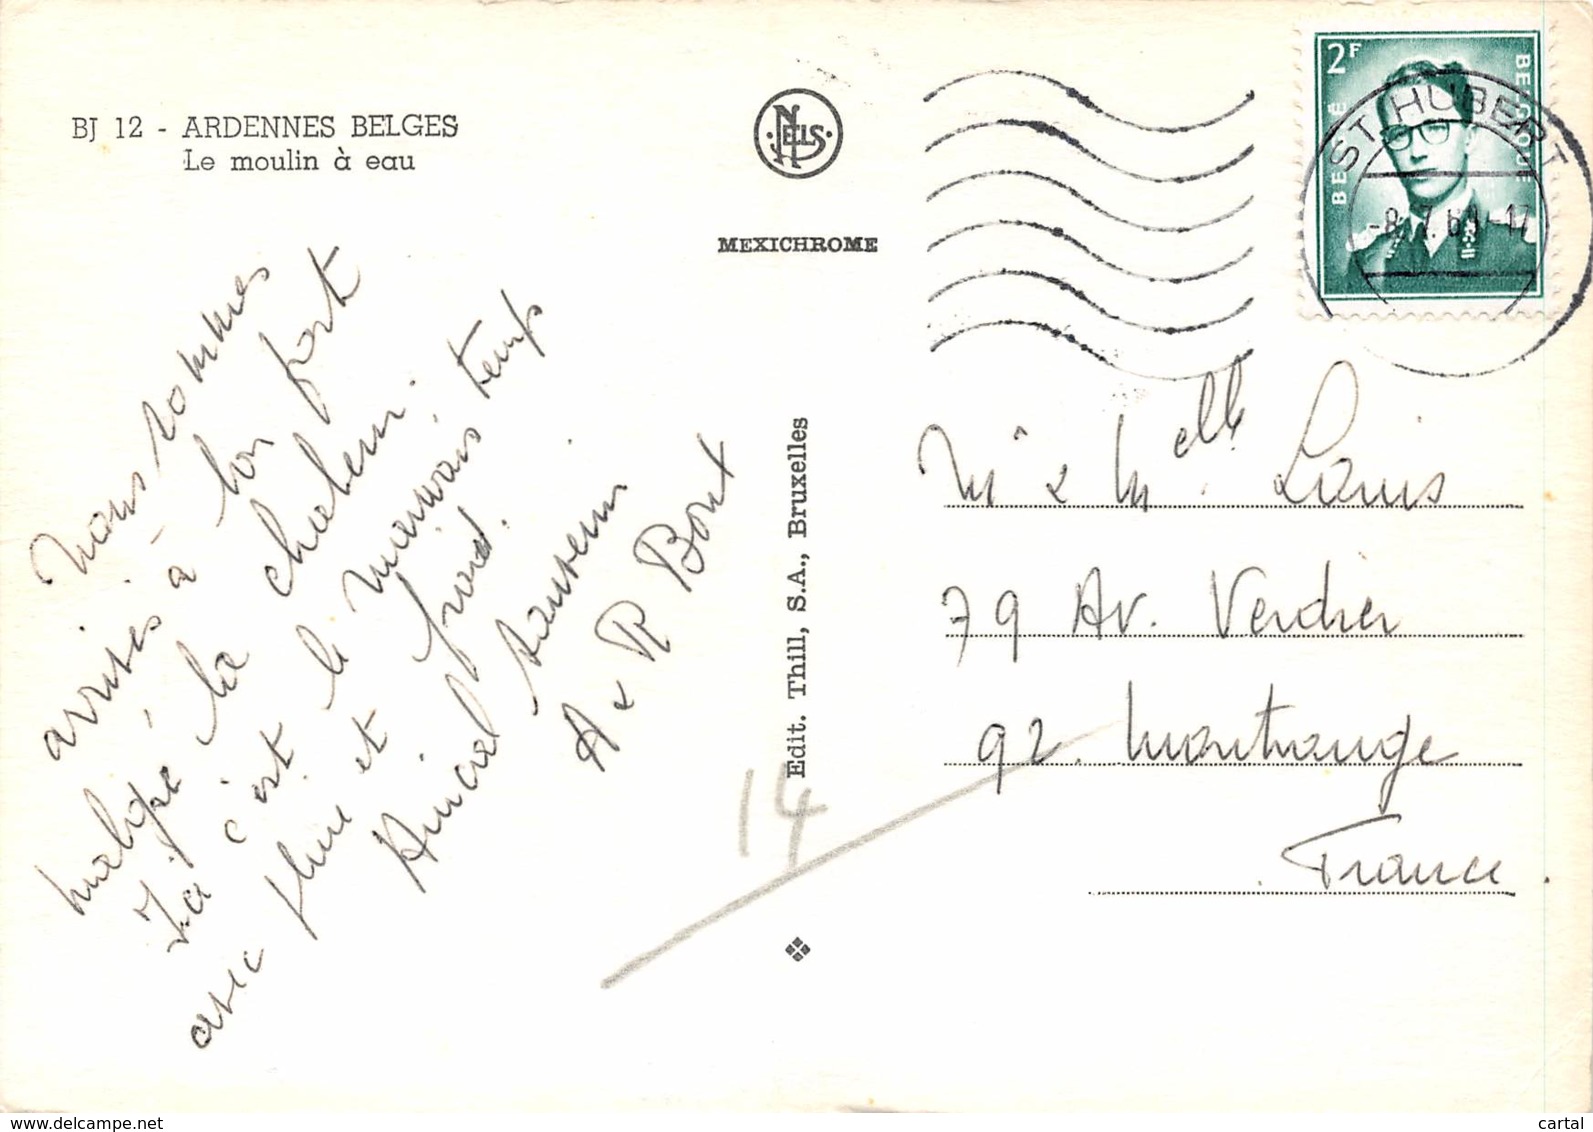 BJ 12 - ARDENNES BELGES
Le moulin à eau
NELS
MEXICHROME
2F
BELGIË
BELGIQUE
ST HUBERT
-8.7.69-17
Nous sommes
arrivés à bon port
malgré la chaleur.
Ici c'est le mauvais temps
avec pluie et froid.
Amical souvenir
A & R Bout
Edit. Thill, S.A., Bruxelles
14
Mr & Melle Louis
79 Av. Verdier
92. Montrouge
France.
www.delcampe.net
cartal